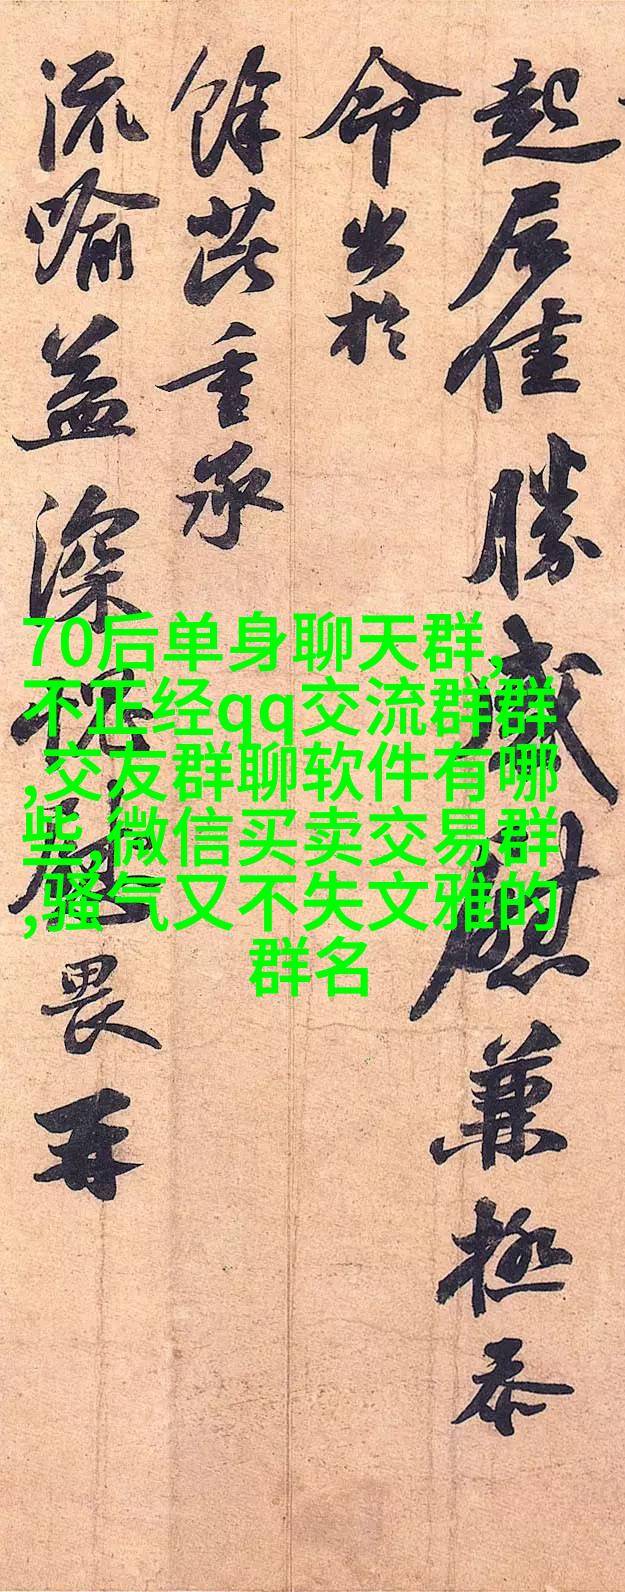 起居佳勝感慰兼極忝
命出於
餘芘重承
流喻益深愧慰畏再
70后单身聊天群,
不正经qq交流群群
,交友群聊软件有哪
些,微信买卖交易群
,骚气又不失文雅的
群名